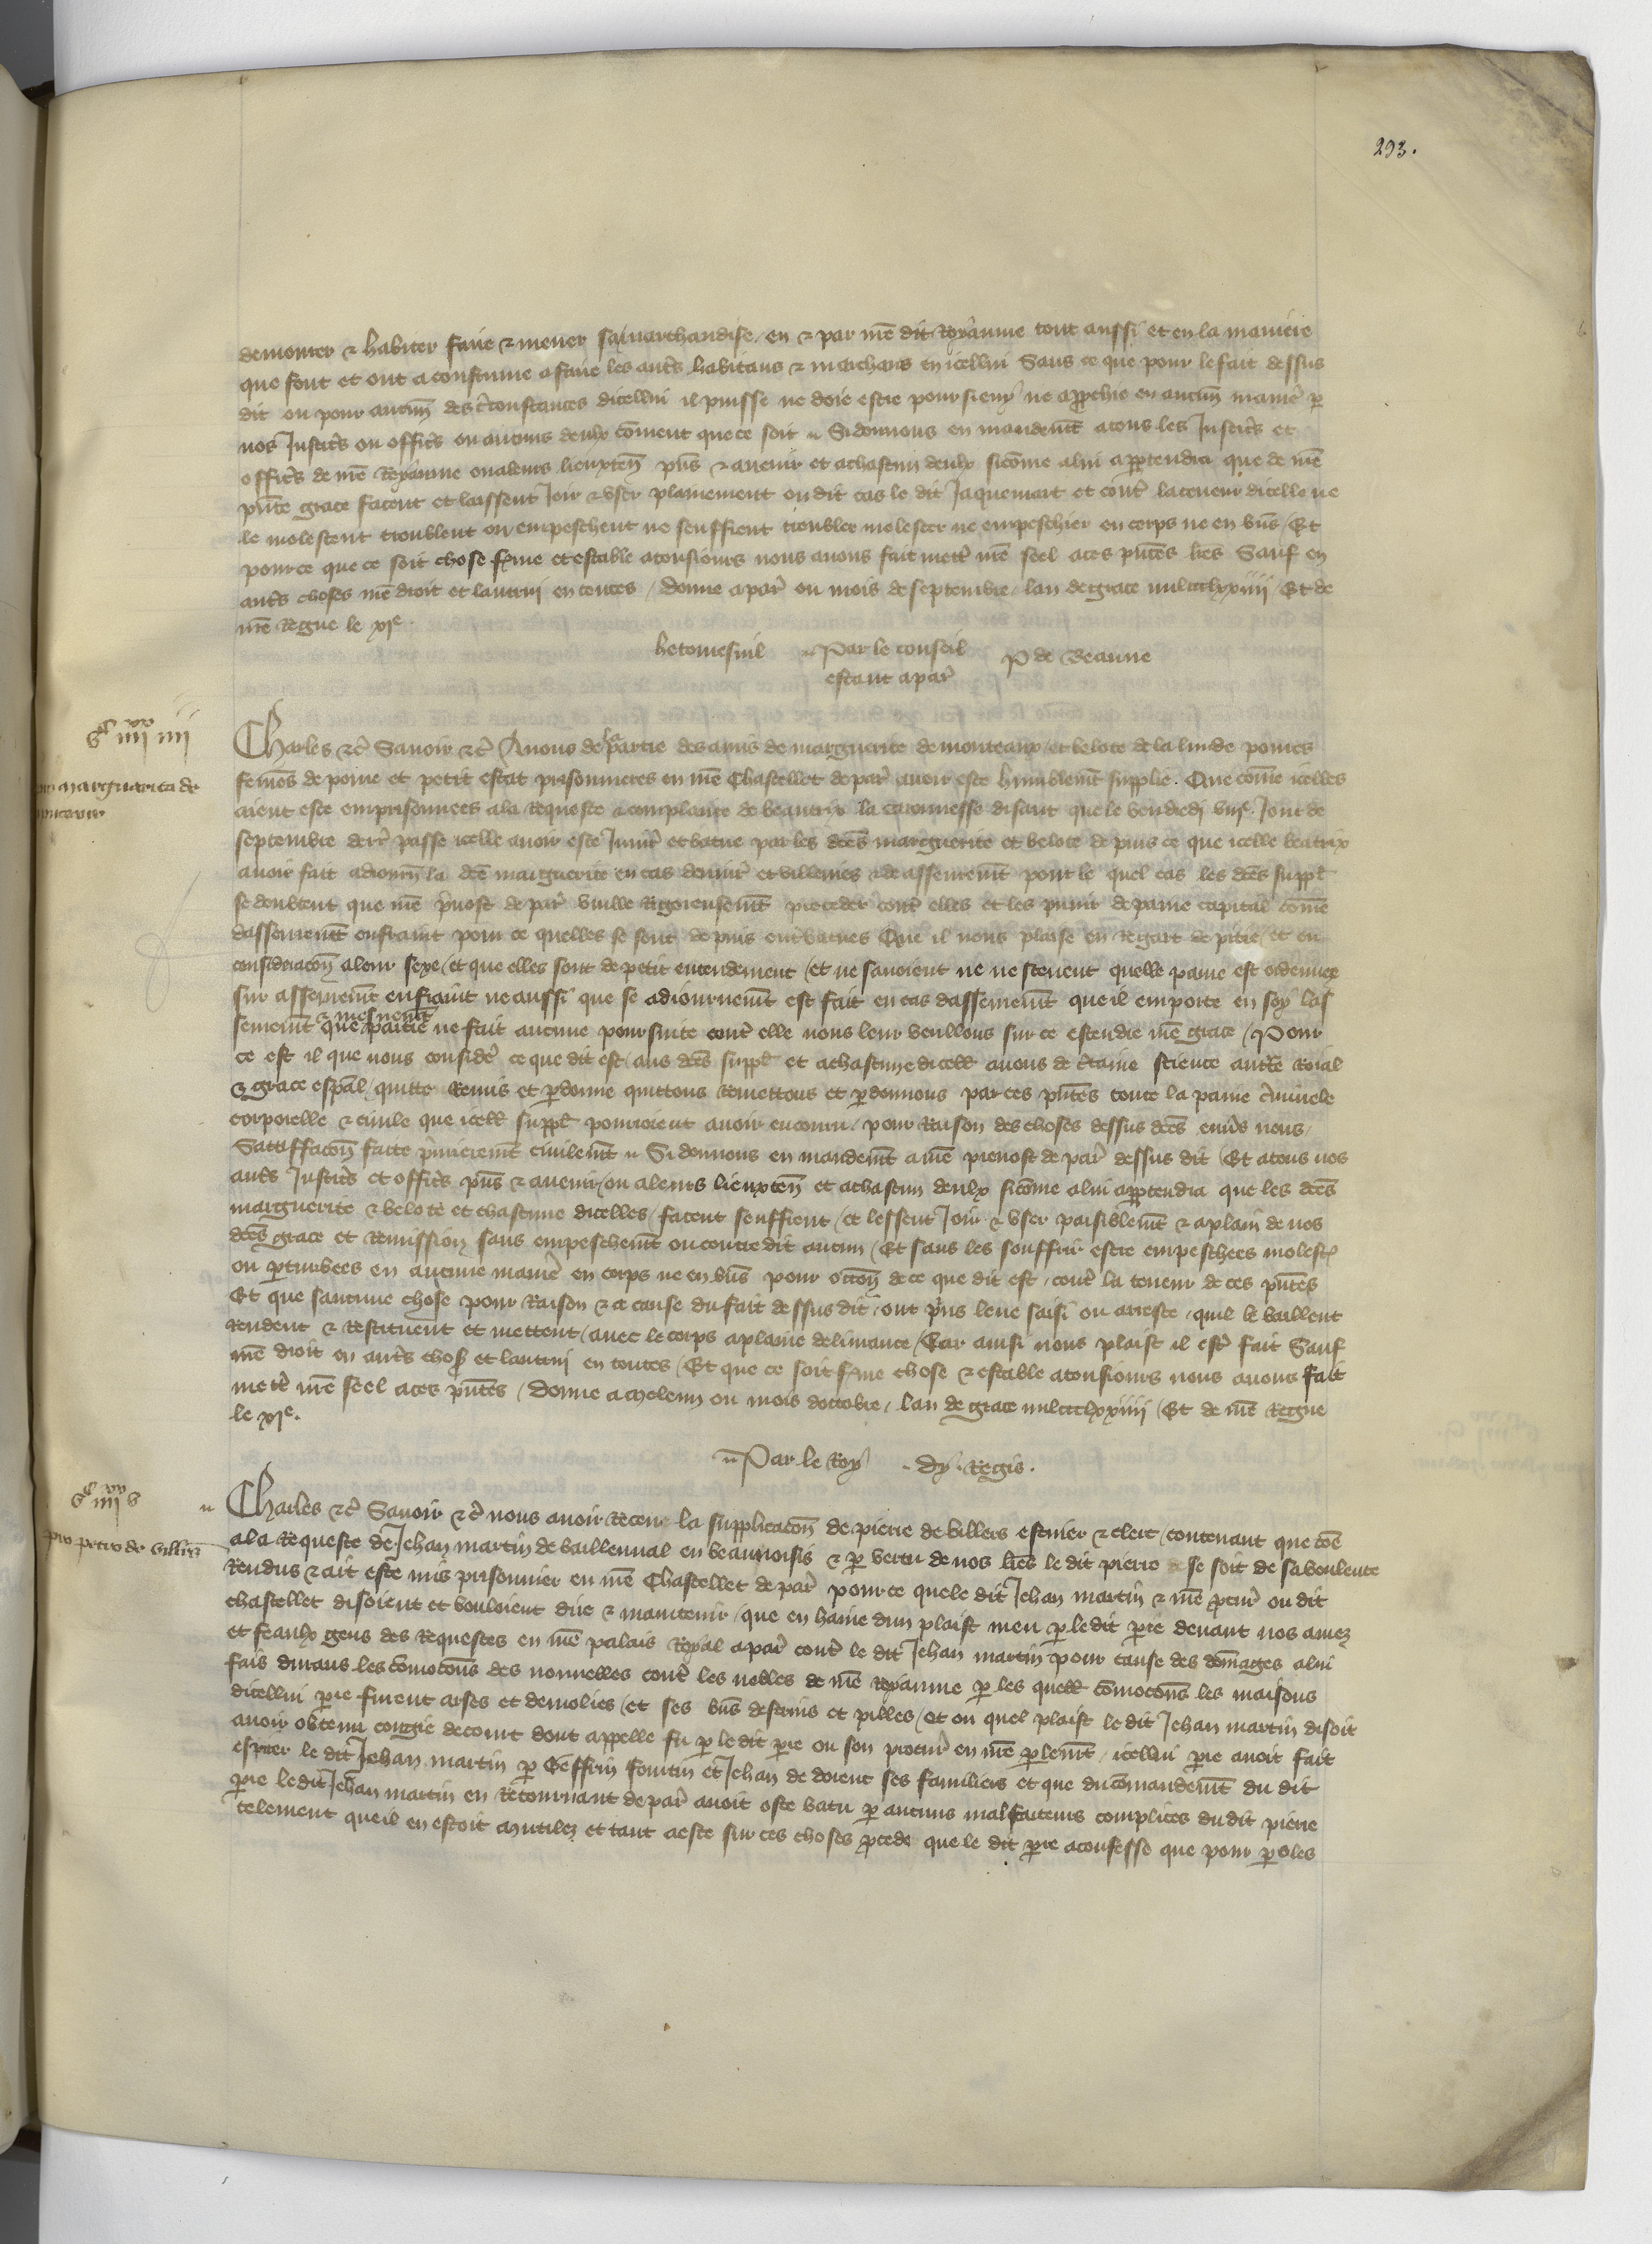 293.
demourer & habiter faire & mener sa marchandise en & par nr̃e dit Royaume tout aussi et en la maniere
que font et ont acoustume a faire les autr̃s habitans & marchans en icellui Sans ce que pour le fait dessus
dit ou pour aucun des c̃constances dicellui il puisse ne doie estre poursieuy ne approchie en aucun manier̃ p
nos Justic̃rs ou offic̃rs ou aucuns deulx com̃ent que ce soit Si donnons en mandem̃t a tous les Justic̃rs et
offic̃rs de nr̃e Royaume ou a leurs lieuxten̄ p̃ns & a venir et a chascun deulx sicom̃e a lui appartendra que de nr̃e
p̃nte grace facent et laissent Joir & user plainement ou dit cas le dit Jaquemart et contr̃ la teneur dicelle ne
le molestent troublent ou empeschent ne seuffrent troubler molester ne empeschier en corps ne en biẽs / Et
pour ce que ce soit chose ferme et estable a tousiours nous avons fait mettr̃ nr̃e seel a ces p̃ntes lr̃es Sauf en
autr̃s choses nr̃e droit et lautrui en toutes / Donne a par̃ ou mois de septembre lan de grace mil ccc lxxiiii / Et de
nr̃e Regne le xi^e.
hetomesnil Par le conseil P de Beaune
estant a par̃
iiii^xx iiii
pro margareta de
Charles &c̃ Savoir &c̃ A nous de la partie des amis de marguerite de monteaux et belote de la linde povres
fem̃es de povre et petit estat prisonnieres en nr̃e Chastellet de par̃ avoir este humblem̃t supplie. Que com̃e icelles
aient este emprisonnees a la requeste & complainte de beautrix la disant que le vendredi viii^e. Jour de
septembre derr̃ passe icelle avoir este Jniur̃ et batue par les dc̃es marguerite et belote depuis ce que icelle beatrix
avoir fait adiourn̄ la dc̃e marguerite en cas deniur̃ et villenies & de asseurem̃t pour le quel cas les dc̃es suppl̃
se doubtent que nr̃e p̃vost de par̃ vueille Rigoreusem̃t proceder contr̃ elles et les punir de paine capital com̃e
dasseurem̃t enfraint pour ce quelles se sont depuis entbatues Que il nous plaise en Regart de pitie / et en
consideracõn a leur sexe / et que elles sont de petit entendement / et ne savoient ne ne scevent quelle paine est ordennee
sur asseurem̃t enfraint ne aussi que se adiournem̃t est fait en cas dasseurem̃t que il emporte en soy las
& mesmem̃t
seurem̃t que partie ne fait aucune poursuite contr̃ elle nous leur veullons sur ce estendre nr̃e grace / Pour
ce est il que nous consider̃ ce que dit est / aus dc̃es suppl̃ et a chascune dicell̃ avons de c̃taine science auctr̃e Roial
& grace esp̃al / quitte Remis et p̱donne quittons Remettons et p̱donnons par ces p̃ntes toute la paine c̃minele
corporelle & civile que icell̃ suppl̃ pourroient avoir encouru / pour Raison des choses dessus dc̃es env̂s nous /
Satiffacõn faicte p̃mierem̃t civilem̃t Si donnons en mandem̃t a nr̃e prevost de par̃ dessus dit / Et a tous nos
autr̃s Justic̃rs et offic̃rs p̃ns & a venir / ou a leurs lieuxten̄ et a chascun deulx sicom̃e a lui appartendra que les dc̃es
marguerite & belote et chascune dicelles / facent seuffrent / et lessent Joir & user paisiblem̃t & a plain de nos
dc̃es grace et Remission sans empeschem̃t ou contredit aucun / Et sans les souffrir estre empeschees molest̃
ou p̱turbees en aucune manier̃ en corps ne en biẽs pour occõn de ce que dit est / contr̃ la teneur de ces p̃ntes
Et que saucune chose pour Raison & a cause du fait dessus dit / ont p̃ns leve saisi ou arreste / quil le baillent
Rendent & Restituent et mettent / avec le corps a plaine delivrance / Car ainsi nous plaist il estr̃ fait Sauf
nr̃e droit en autr̃s chos̃ et lautrui en toutes / Et que ce soit ferme chose & estable a tousiours nous avons fait
mettr̃ nr̃e seel a ces p̃ntes / Donne a meleun ou mois doctobre / lan de grace mil ccc lxxiiii / Et de nr̃e Regne
le xi^e.
Par le Roy . Dy. Regis .
iiii^xx v
pro petro de villers
Charles &c̃ Savoir &c̃ nous avoir receue la supplicacõn de pierre de villers escuier & clerc / contenant que com̃e
a la Requeste de Jehan martin de baillenval en beauvoisis & p̱ vertu de nos lr̃es le dit pierre se soit de sa voulente
Rendus & ait este mis prisonnier en nr̃e Chastellet de par̃ pour ce que le dit Jehan martin & nr̃e p̱cur̃ ou dit
chastellet disoient et vouloient dire & maintenir / que en haine dun plaist meu p̱ le dit p̱re devant nos amez
et feaulx gens des Requestes en nr̃e palais Royal a par̃ contr̃ le dit Jehan martin pour cause des dom̃ages a lui
fais durans les com̃ocõns des nonnobles contr̃ les nobles de nr̃e Royaume p̱ les quell̃ com̃ocõns les maisons
dicellui p̱re furent arses et demolies / et ses biẽs destruis et pilles / Et ou quel plaist le dit Jehan martin disoit
avoir obtenu congie de court dont appelle fu p̱ le dit p̱re ou son procur̃ en nr̃e p̱lem̃t / icellui p̱re avoit fait
espier le dit Jehan martin p̱ Geffrin fouitin et Jehan de dorent ses familiers et que du com̃andem̃t du dit
p̱re le dit Jehan martin en Retournant de par̃ avoit este batu p̱ aucuns malfaiteurs complices du dit pierre
telement que il en estoit mutilez et tant a este sur ces choses p̱cede que le dit p̱re a confesse que pour p̱oles